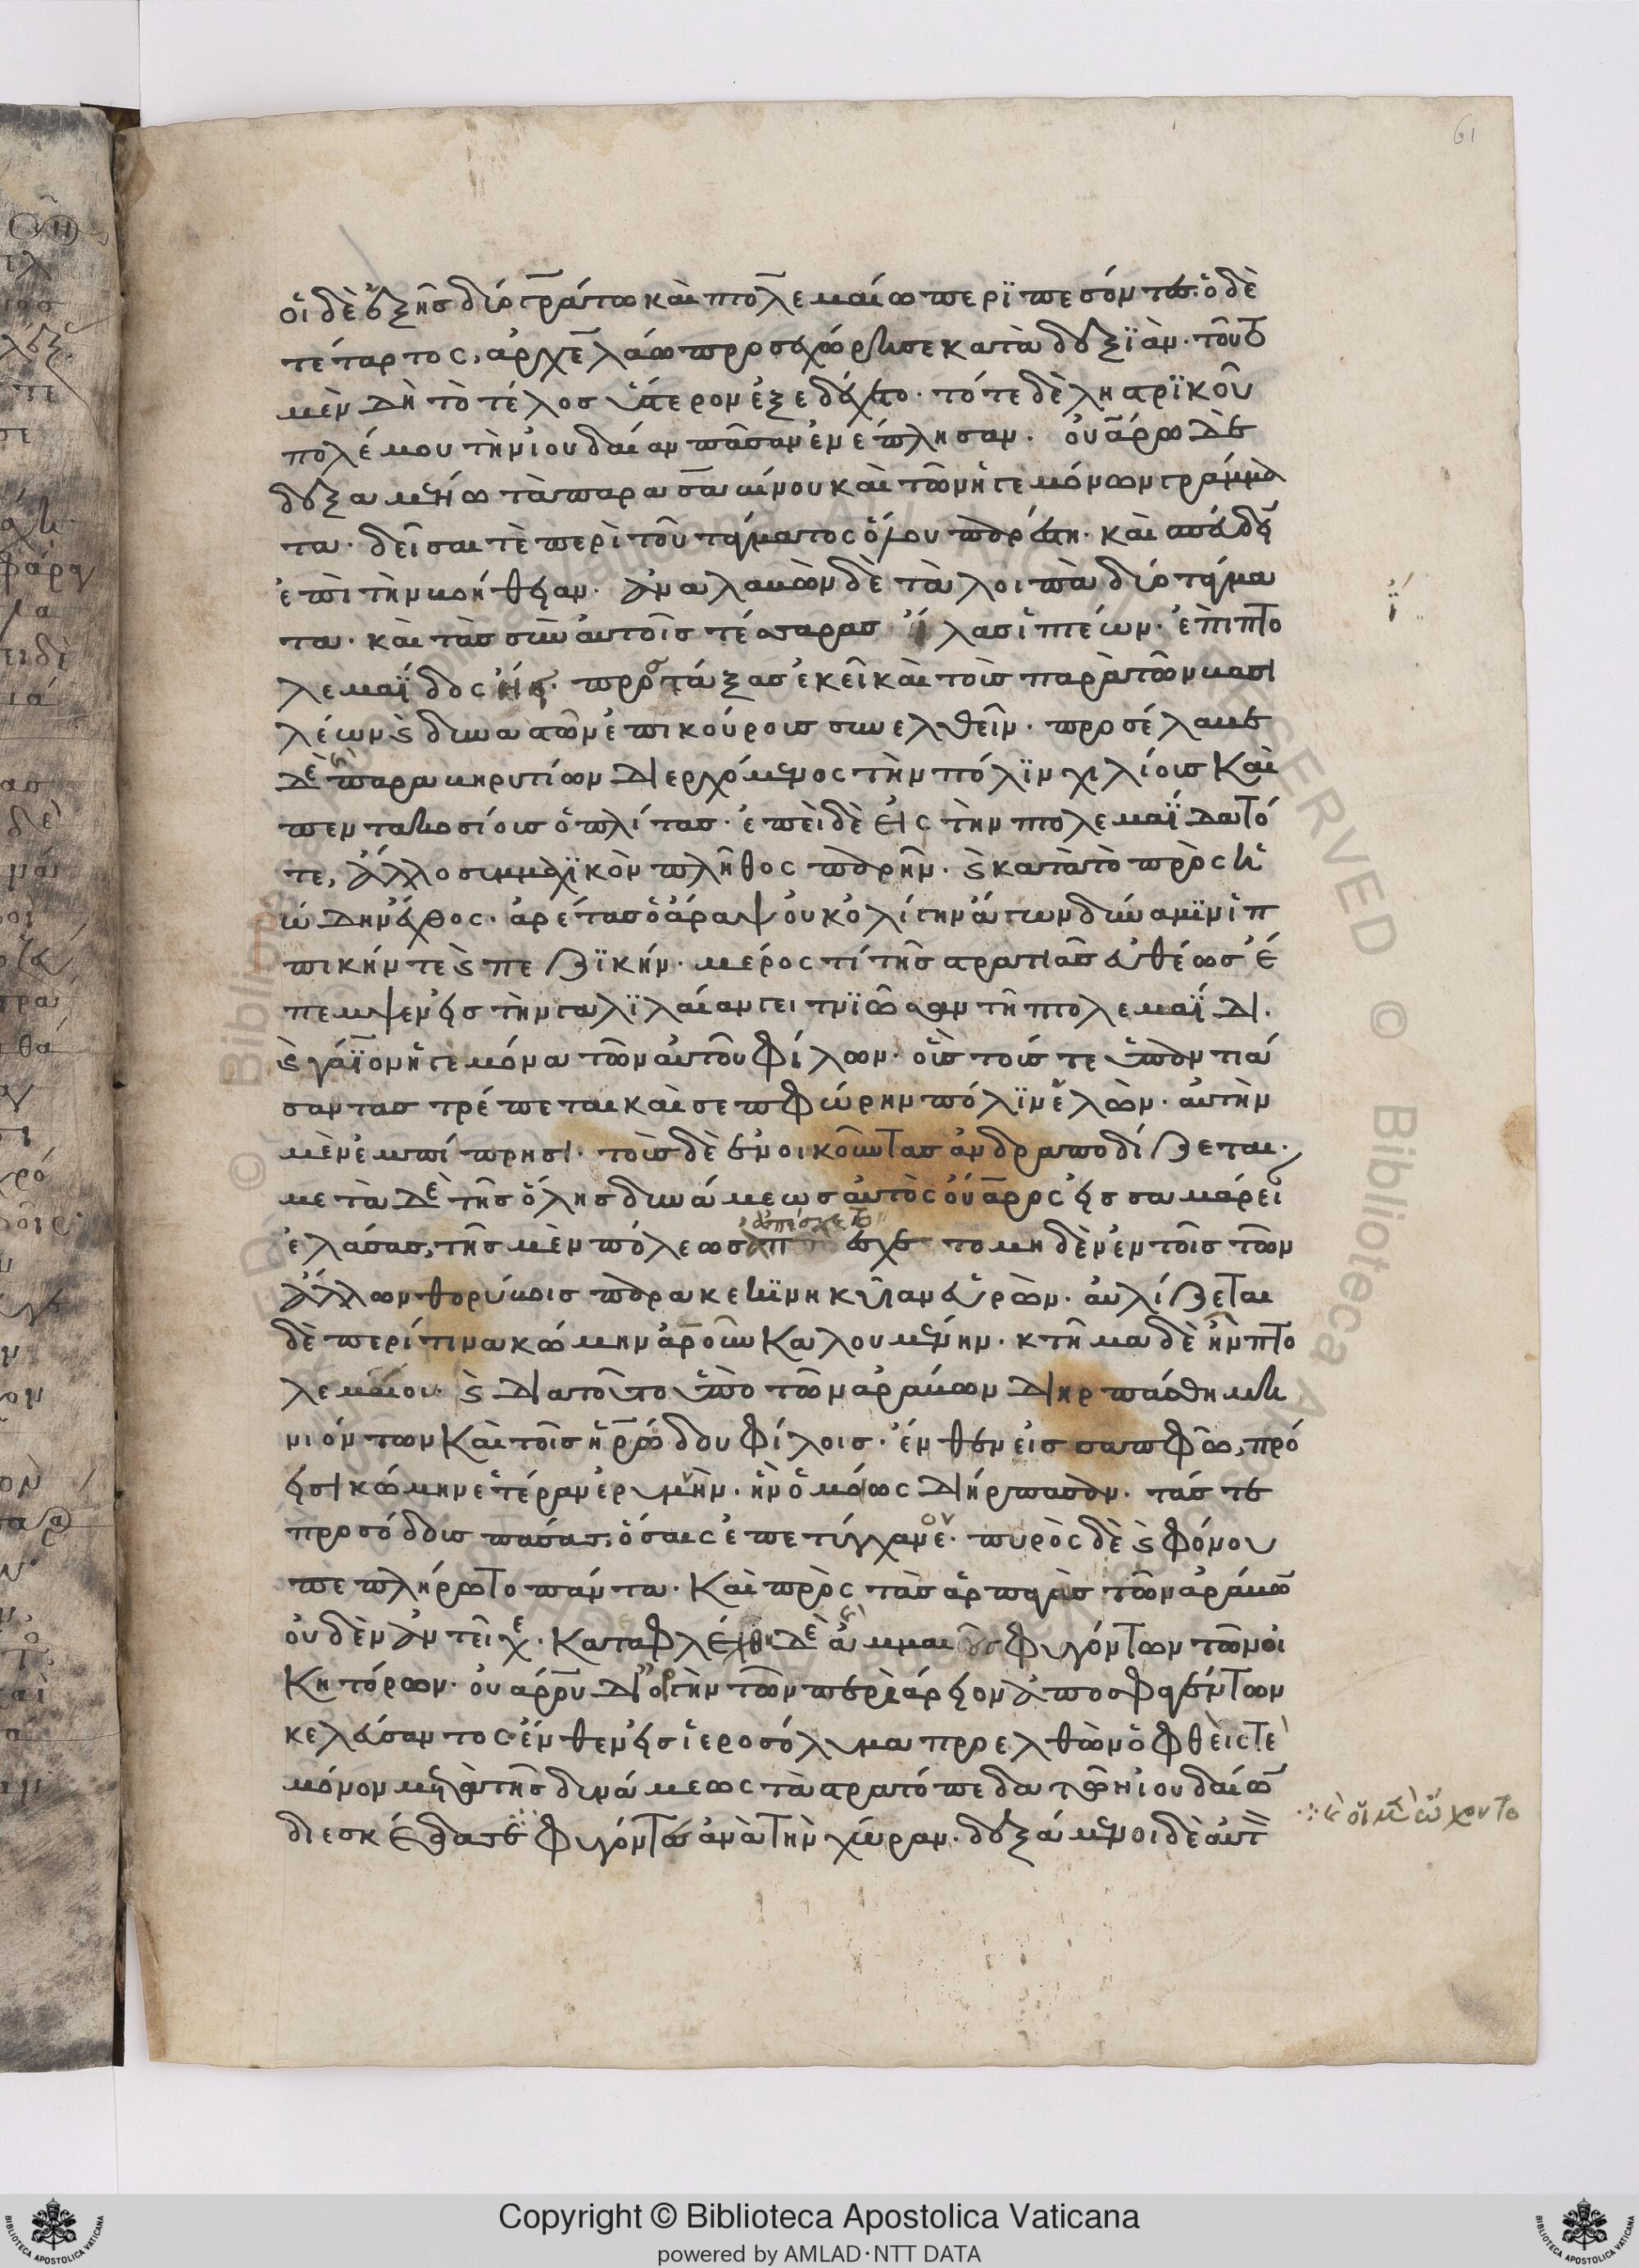 61
οἱ δὲ ἑξῆς δύο γράτω καὶ πτολεμαίω περιπεσόντες· ὁ δὲ
τέταρτος, ἀρχελάω προσχωρήσε κατὰ δεξιάν· τοῦτο
μὲν δὴ τὸ τέλος ὕστερον ἐξεδέχετο· τότε δὲ ληστρικοῦ
πολέμου τὴν ἰουδαίαν πᾶσαν ἐνέπλησαν· οὐάρω δὲ
δεξαμένω τὰ παρὰ σαβίνου καὶ τῶν ἡγεμόνων γράμμα
τα· δεῖσαί τε περὶ τοῦ τάγματος ὅλου παρέστη· καὶ σπεύδει
ἐπὶ τὴν βοήθειαν· ἀναλαβὼν δὲ τὰ λοιπὰ δύο τάγμα
τα· καὶ τὰς σὺν αὐτοῖς τέσσαρας ἴλας ἱππέων· ἐπὶ πτο
λεμαΐδος ᾔει· προστάξας ἐκεῖ καὶ τοὺς παρὰ τῶν βασι
λέων καὶ δυνατῶν ἐπικούρους συνελθεῖν· προσέλαβε
δὲ καὶ παρὰ βηρυτίων διερχόμενος τὴν πόλιν χιλίους καὶ
πεντακοσίους ὁπλίτας· ἐπεὶ δὲ εἰς τὴν πτολεμαΐδα τό
τε, ἄλλο συμμαχικὸν πλῆθος παρῆν· καὶ κατὰ τὸ πρὸς ἡ
ώδην ἔχθος· ἀρέτας ὁ ἄραψ οὐκ ὀλίγην ἄγων δύναμιν ἱπ
πικήν τε καὶ πεζικήν· μέρος τι τῆς στρατιᾶς εὐθέως ἔ
πεμψεν εἰς τὴν γαλιλαίαν γειτνιῶσαν τῆ πτολεμαΐδι·
καὶ γάϊον ἡγεμόνα τῶν αὐτοῦ φίλων· ὃς τούς τε ὑπαντιά
σαντας τρέπεται καὶ σεπφώρην πόλιν ἑλών· αὐτὴν
μὲν ἐμπίπρησι· τοὺς δὲ ἐνοικοῦντας ἀνδραποδίζεται·
μετὰ δὲ τῆς ὅλης δυνάμεως αὐτὸς οὔαρος εἰς σαμάρειαν
ἐλάσας, τῆς μὲν πόλεως ἀπέσχετο το μηδὲν ἐν τοῖς τῶν
ἄλλων θορύβοις παρακεκινηκυῖαν εὑρών· αὐλίζεται
δὲ περί τινα κώμην ἀροῦν καλουμένην· κτῆμα δὲ ἦν πτο
λεμαίου· καὶ διὰ τοῦτο ὑπὸ τῶν ἀράβων διηρπάσθη μη
νιόντων καὶ τοῖς ἡρώδου φίλοις· ἔνθεν εἰς σαπφῶ, πρό
εισι κώμην ἑτέραν ἐρυμνήν· ἣν ὁμοίως διήρπασαν· τάς τε
προσόδους πάσας, ὅσαις ἐπετύγχανον· πυρὸς δὲ καὶ φόνου
πεπλήρωτο πάντα· καὶ πρὸς τὰς ἁρπαγὰς τῶν ἀράβων
οὐδὲν ἀντεῖχε· κατεφλέχθη δὲ καὶ ἀμμαοῦς φυγόντων τῶν οἰ
κητόρων· οὐάρου διὀργὴν τῶν περὶ ἄρειον ἀποσφαγέντων
κελεύσαντος· ἔνθεν εἰς ἱεροσόλυμα προελθὼν ὀφθείς τε
μόνον μετὰ τῆς δυνάμεως τὰ στρατόπεδα τῶν ἰουδαίων
διεσκέδασε φυγόντας ἀνὰ τὴν χώραν· δεξάμενοι δὲ αὐτ
καὶ οἱ μὲν ὤχοντο
Copyright © Biblioteca Apostolica Vaticana
powered by AMLAD·NTT DATA